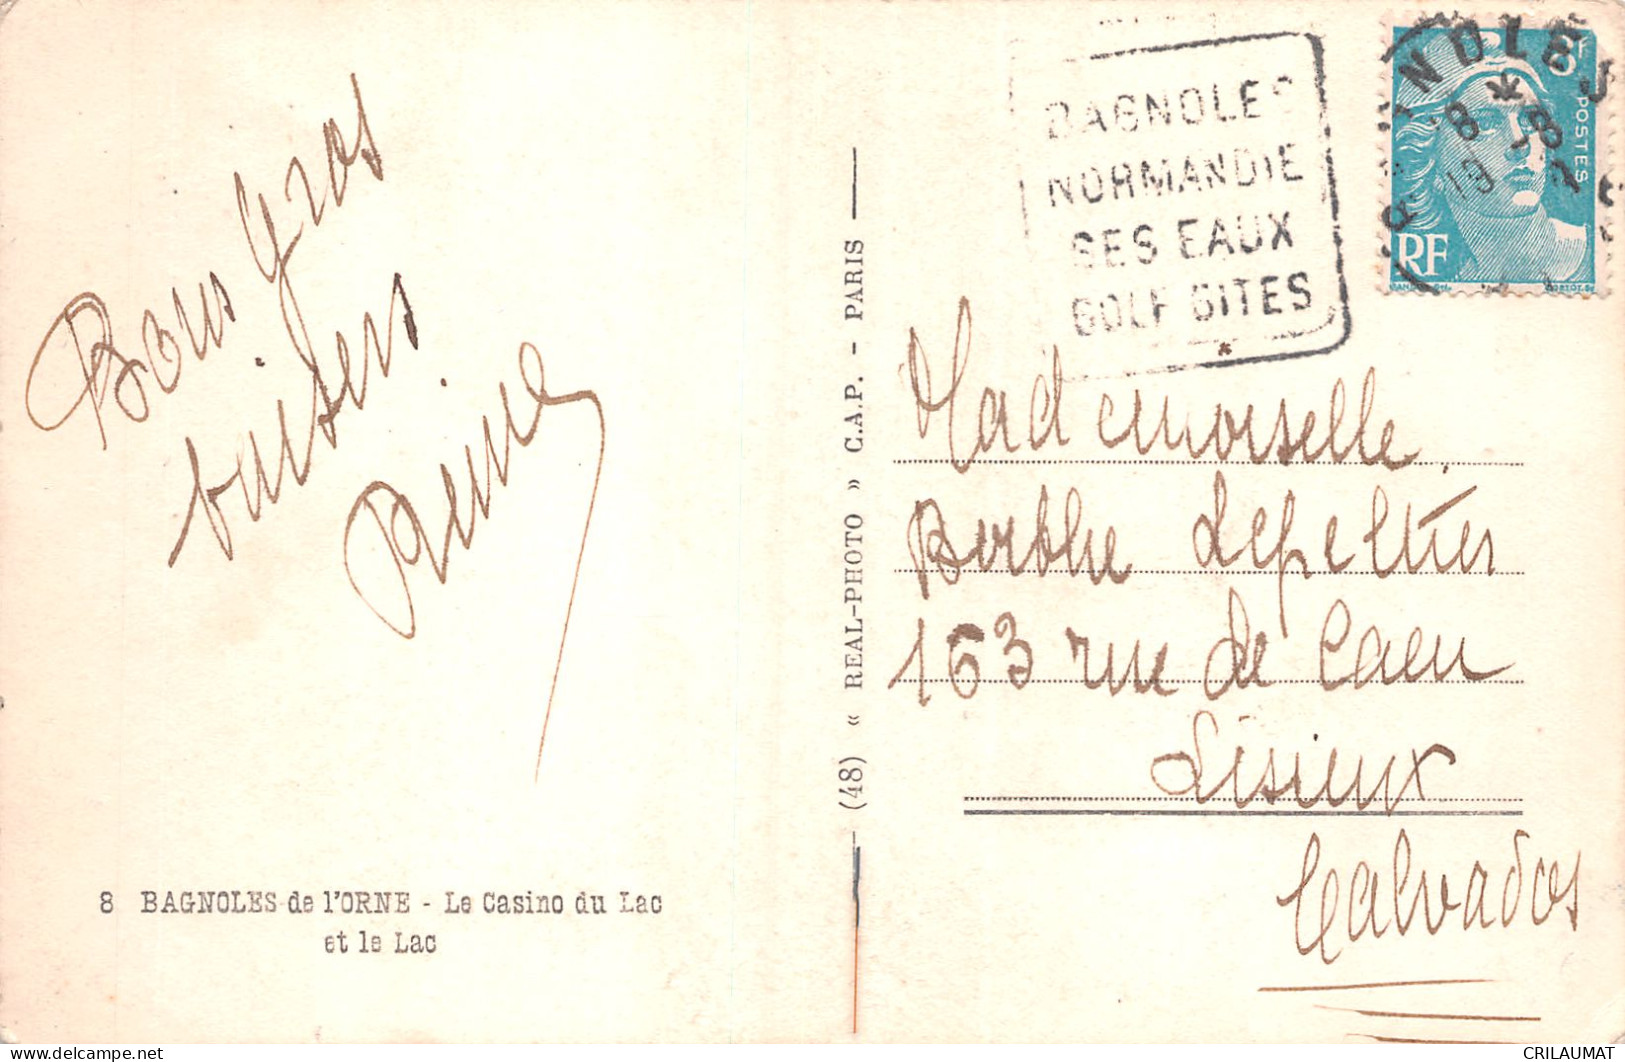 Bons gros
baisers
Reine
8 BAGNOLES de l'ORNE - Le Casino du Lac
et le Lac
(48) « REAL-PHOTO » C.A.P. - PARIS
BAGNOLES
NORMANDIE
SES EAUX
GOLF SITES
*
POSTES
RF
Mademoiselle
Berthe Lepeltier
163 rue de Caen
Lisieux
Calvados
CRILAUMAT